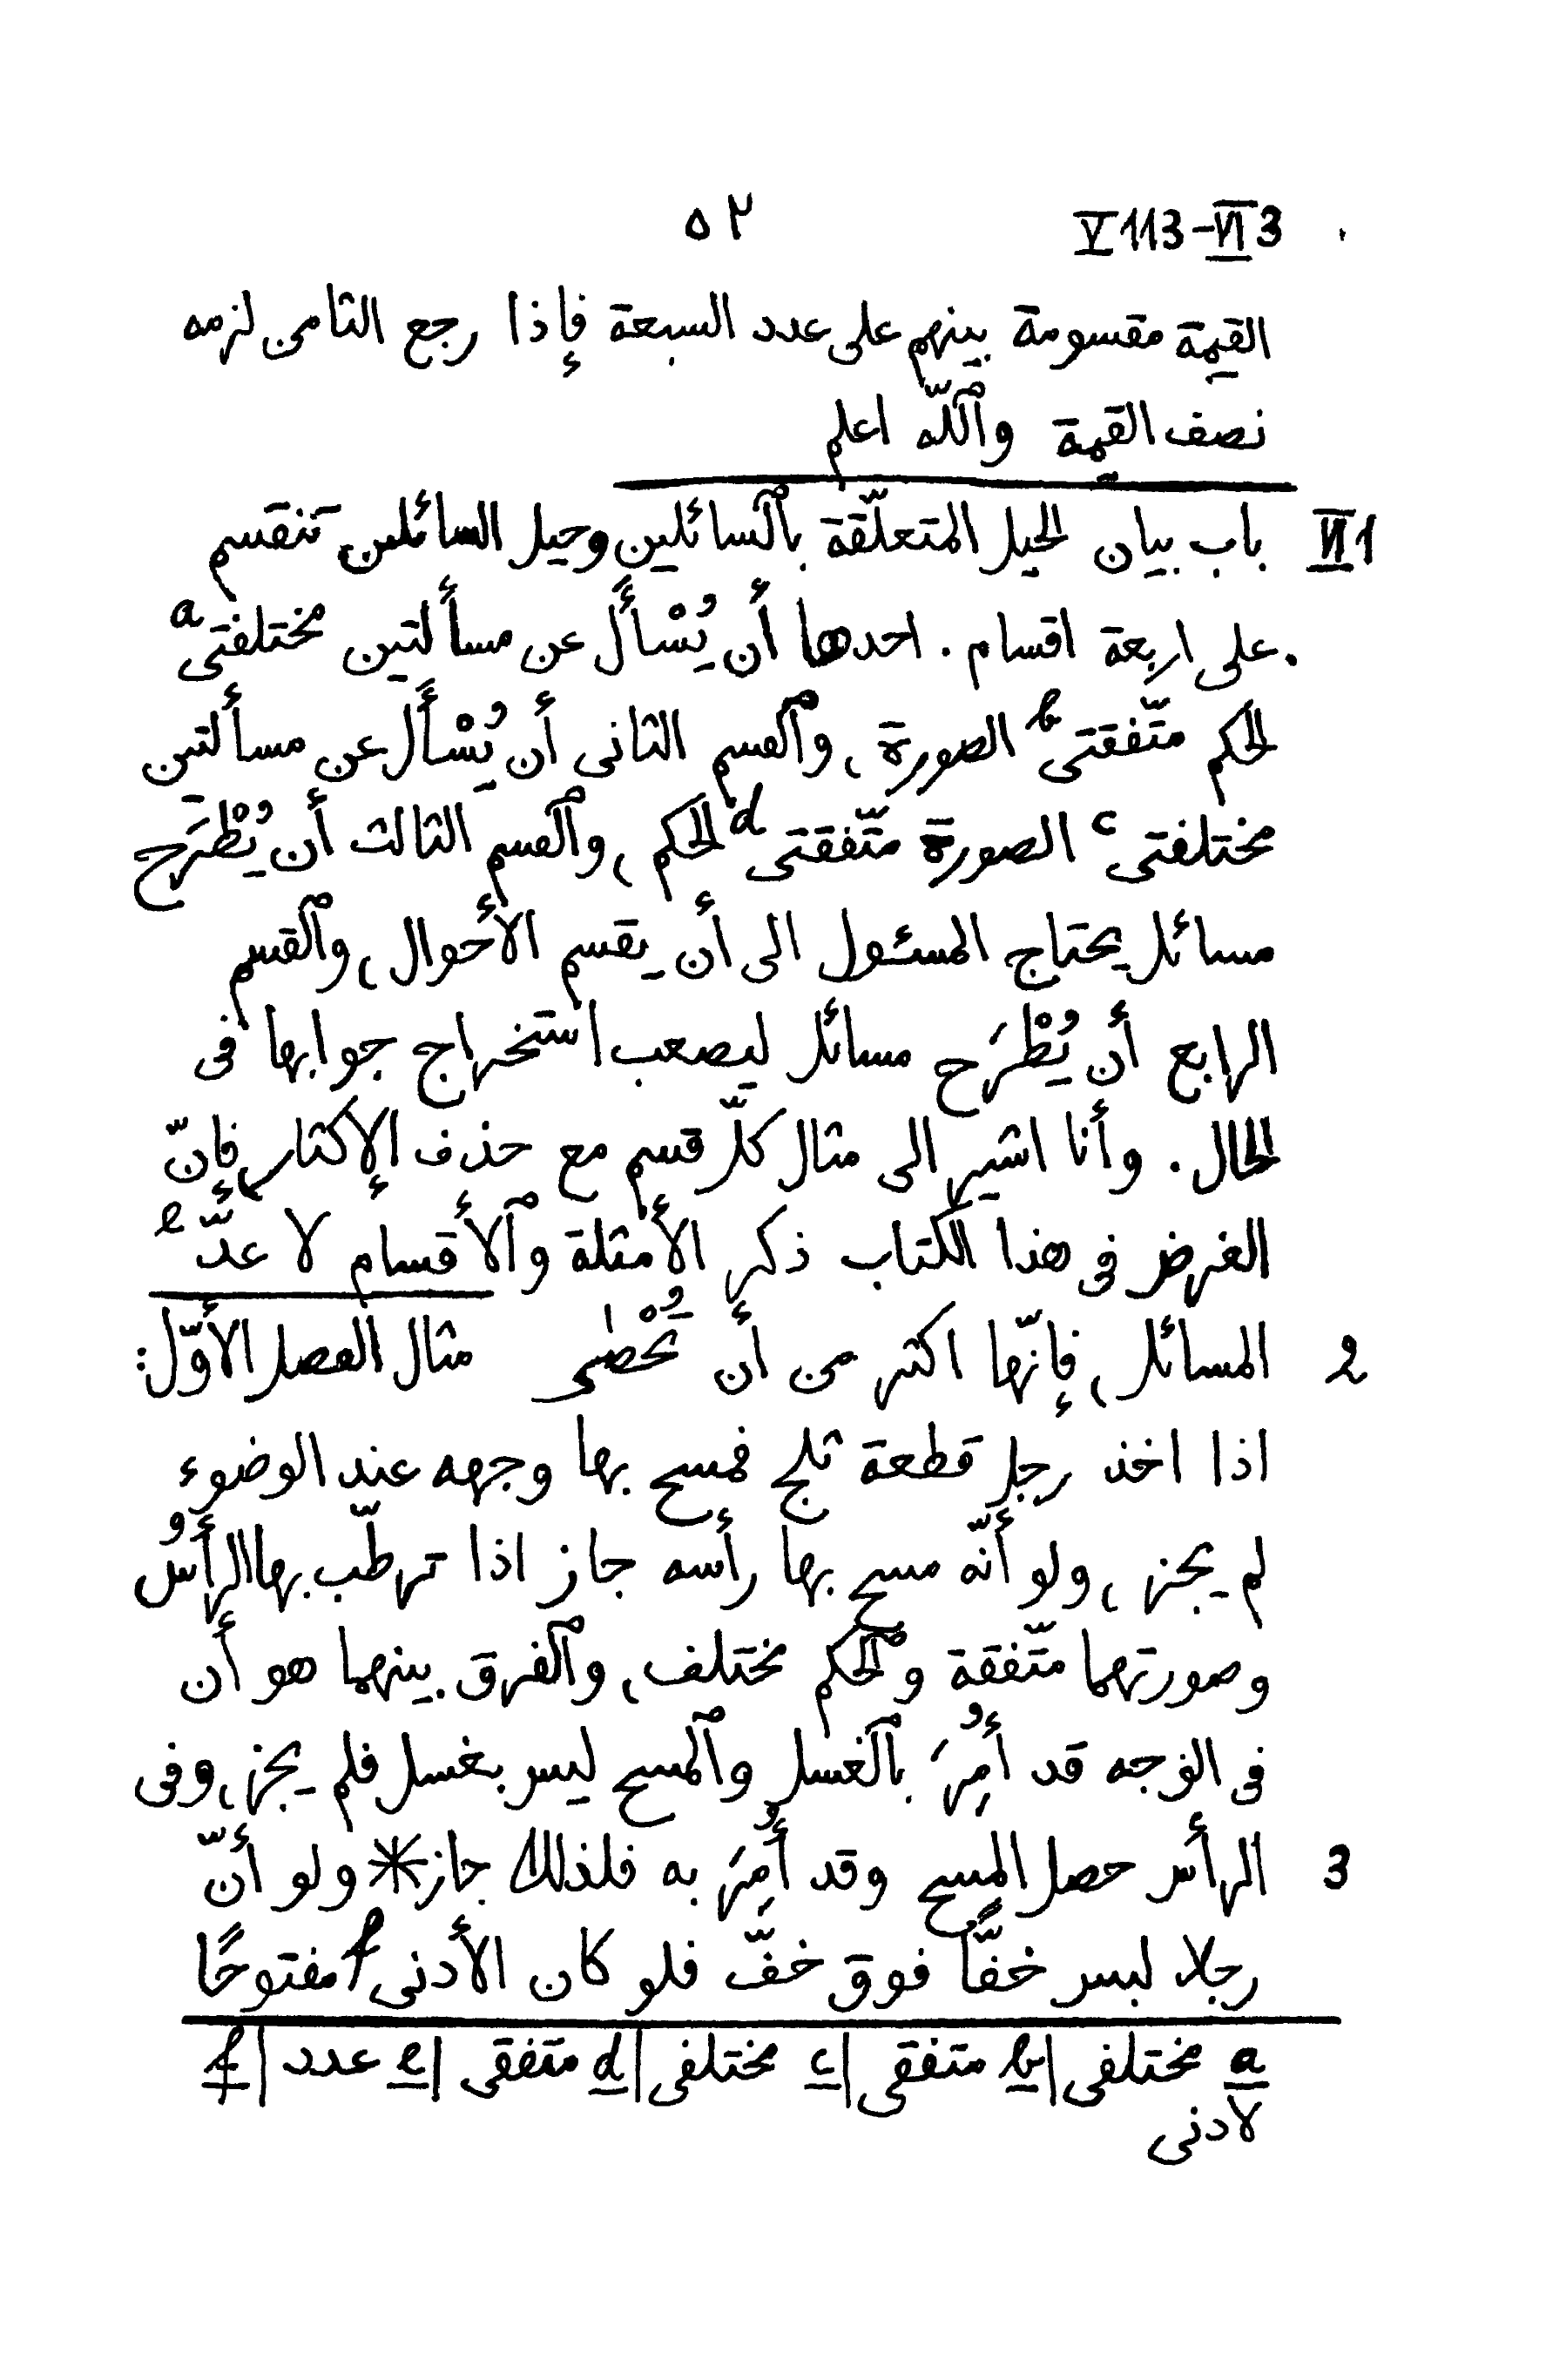 ٥٢ V 113-VI 3
القيمة مقسومة بينهم على عدد السبعة فإذا رجع الثامن لزمه
نصف القيمة وٱللّه اعلم
VI 1 باب بيان الحيل المتعلّقة بٱلسائلين وحيل السائلين تنقسم
على اربعة اقسام. احدها أن يُسْأَل عن مسألتين مختلفتى a
الحكم متّفقتى b الصورة، وٱلقسم الثانى أن يُسْأَل عن مسألتين
مختلفتى c الصورة متّفقتى d الحكم، وٱلقسم الثالث أن يُطْرَح
مسائل يحتاج المسئول الى أن يقسم الأحوال، وٱلقسم
الرابع أن يُطْرَح مسائل ليصعب استخراج جوابها فى
الحال. وأنا اشير الى مثال كلّ قسم مع حذف الإكثار، فإنّ
الغرض فى هذا الكتاب ذكر الأمثلة وٱلأقسام لا عدّ e
2 المسائل، فإنّها اكثر من أن تُحْصٰى مثال الفصل الأوّل:
اذا اخذ رجل قطعة ثلج فمسح بها وجهه عند الوضوء
لم يجز، ولو أنّه مسح بها رأسه جاز اذا ترطّب بها الرأسُ
وصورتهما متّفقة وٱلحكم مختلف، وٱلفرق بينهما هو أن
فى الوجه قد أُمِرَ بٱلغسل وٱلمسح ليس بغسل فلم يجز، وفى
3 الرأس حصل المسح وقد أُمِرَ به فلذلك جاز * ولو أنّ
رجلا لبس خفًّا فوق خفّ فلو كان الأدنى f مفتوحًا
a مختلفى | b متفقى | c مختلفى | d متفقى | e عدد | f
لادنى